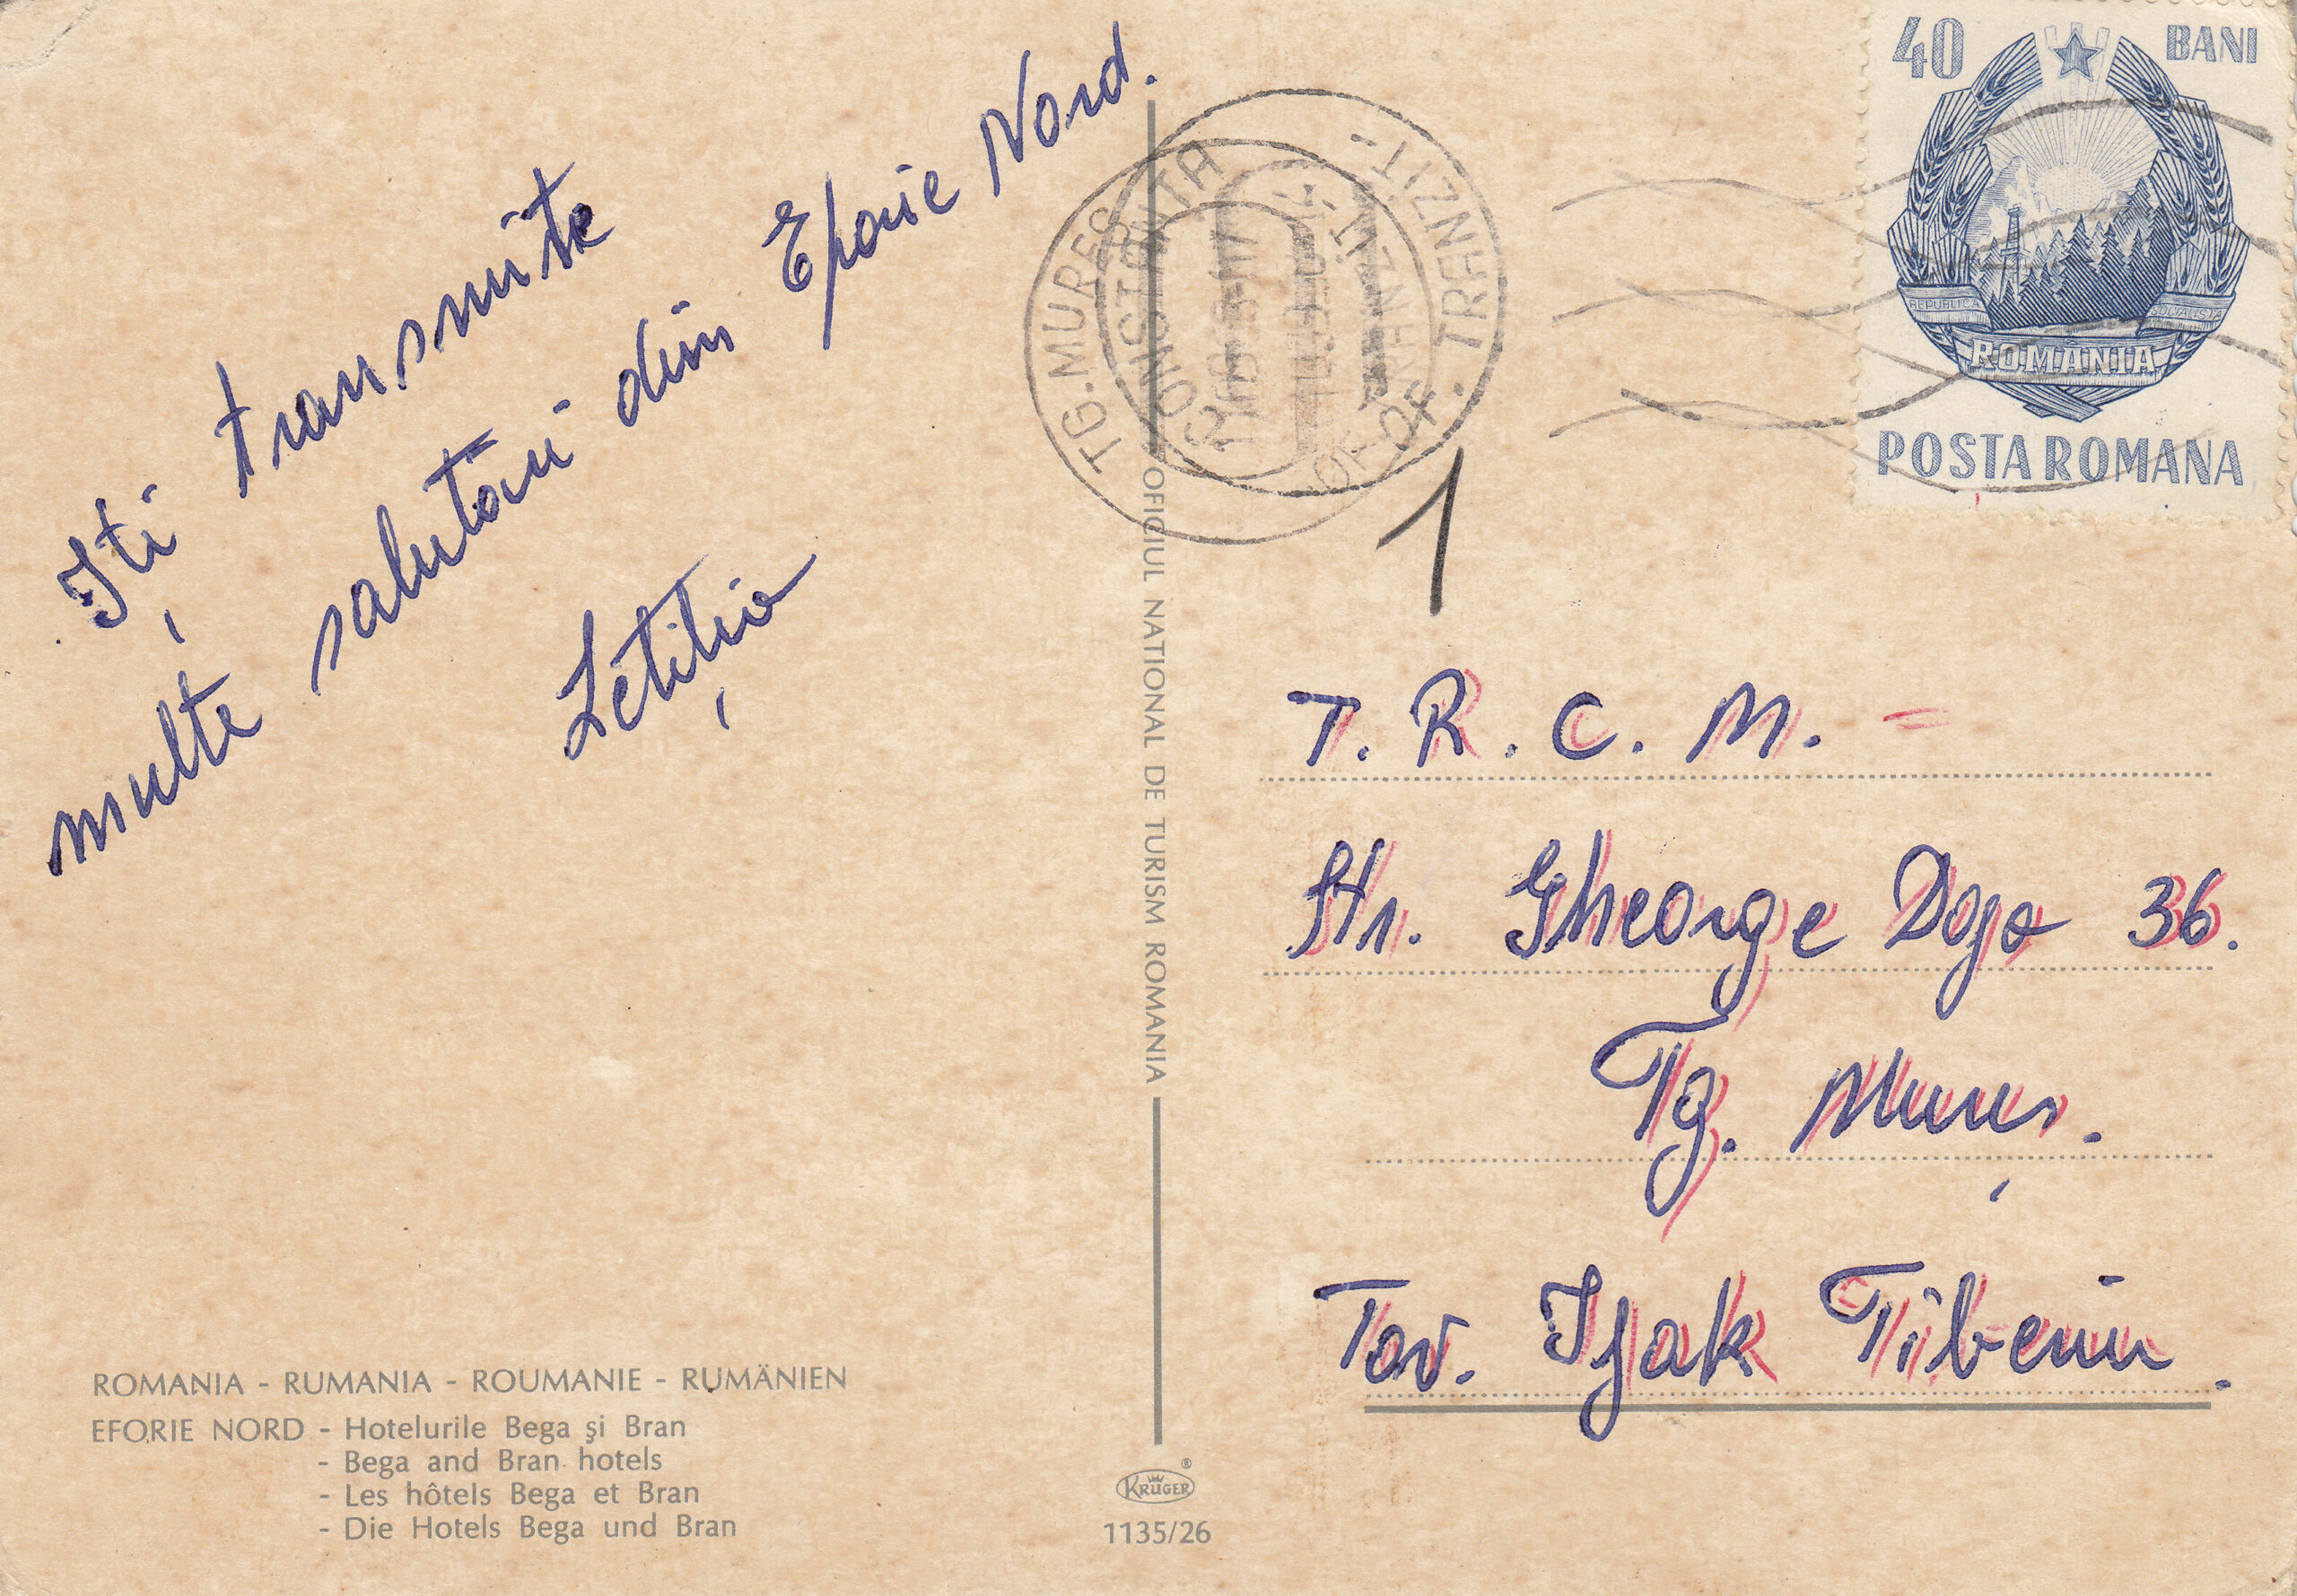 Iți transmite
multe salutări din Eforie Nord.
Letiția
40 BANI
REPUBLICA SOCIALISTA
ROMANIA
POSTA ROMANA
TG. MUREȘ
CONSTANTA
TRANZIT
1
OFICIUL NATIONAL DE TURISM ROMANIA
T. R. C. M.
Str. Gheorge Doja 36.
Tg. Mureș.
Tov. Ijak Tiberiu.
ROMANIA - RUMANIA - ROUMANIE - RUMÄNIEN
EFORIE NORD - Hotelurile Bega şi Bran
- Bega and Bran hotels
- Les hôtels Bega et Bran
- Die Hotels Bega und Bran
KRÜGER ®
1135/26